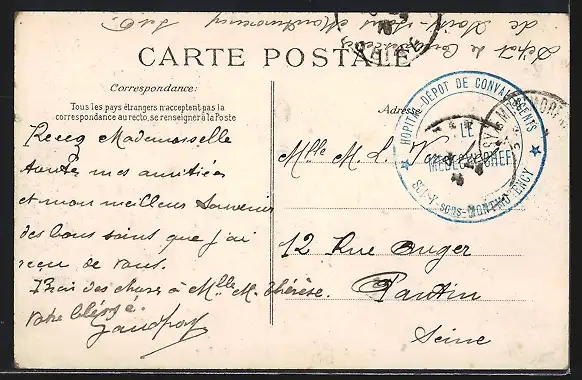 Dépôt de
de Soisy-sous Montmorency
CARTE POSTALE
Correspondance:
Tous les pays étrangers n'acceptent pas la
correspondance au recto, se renseigner à la Poste
Recez Mademoiselle
toutes mes amitiées
et mon meilleur souvenir
des bons soins que j'ai
reçu de vous.
des choses a Mlle M. Thérèse.
votre bléssé.
Adresse
Mlle M. L.
12 Rue Auger
Pantin
Seine
HOPITAL-DÉPOT DE CONVALESCENTS
LE
MEDECIN CHEF
SOISY-SOUS-MONTMORENCY